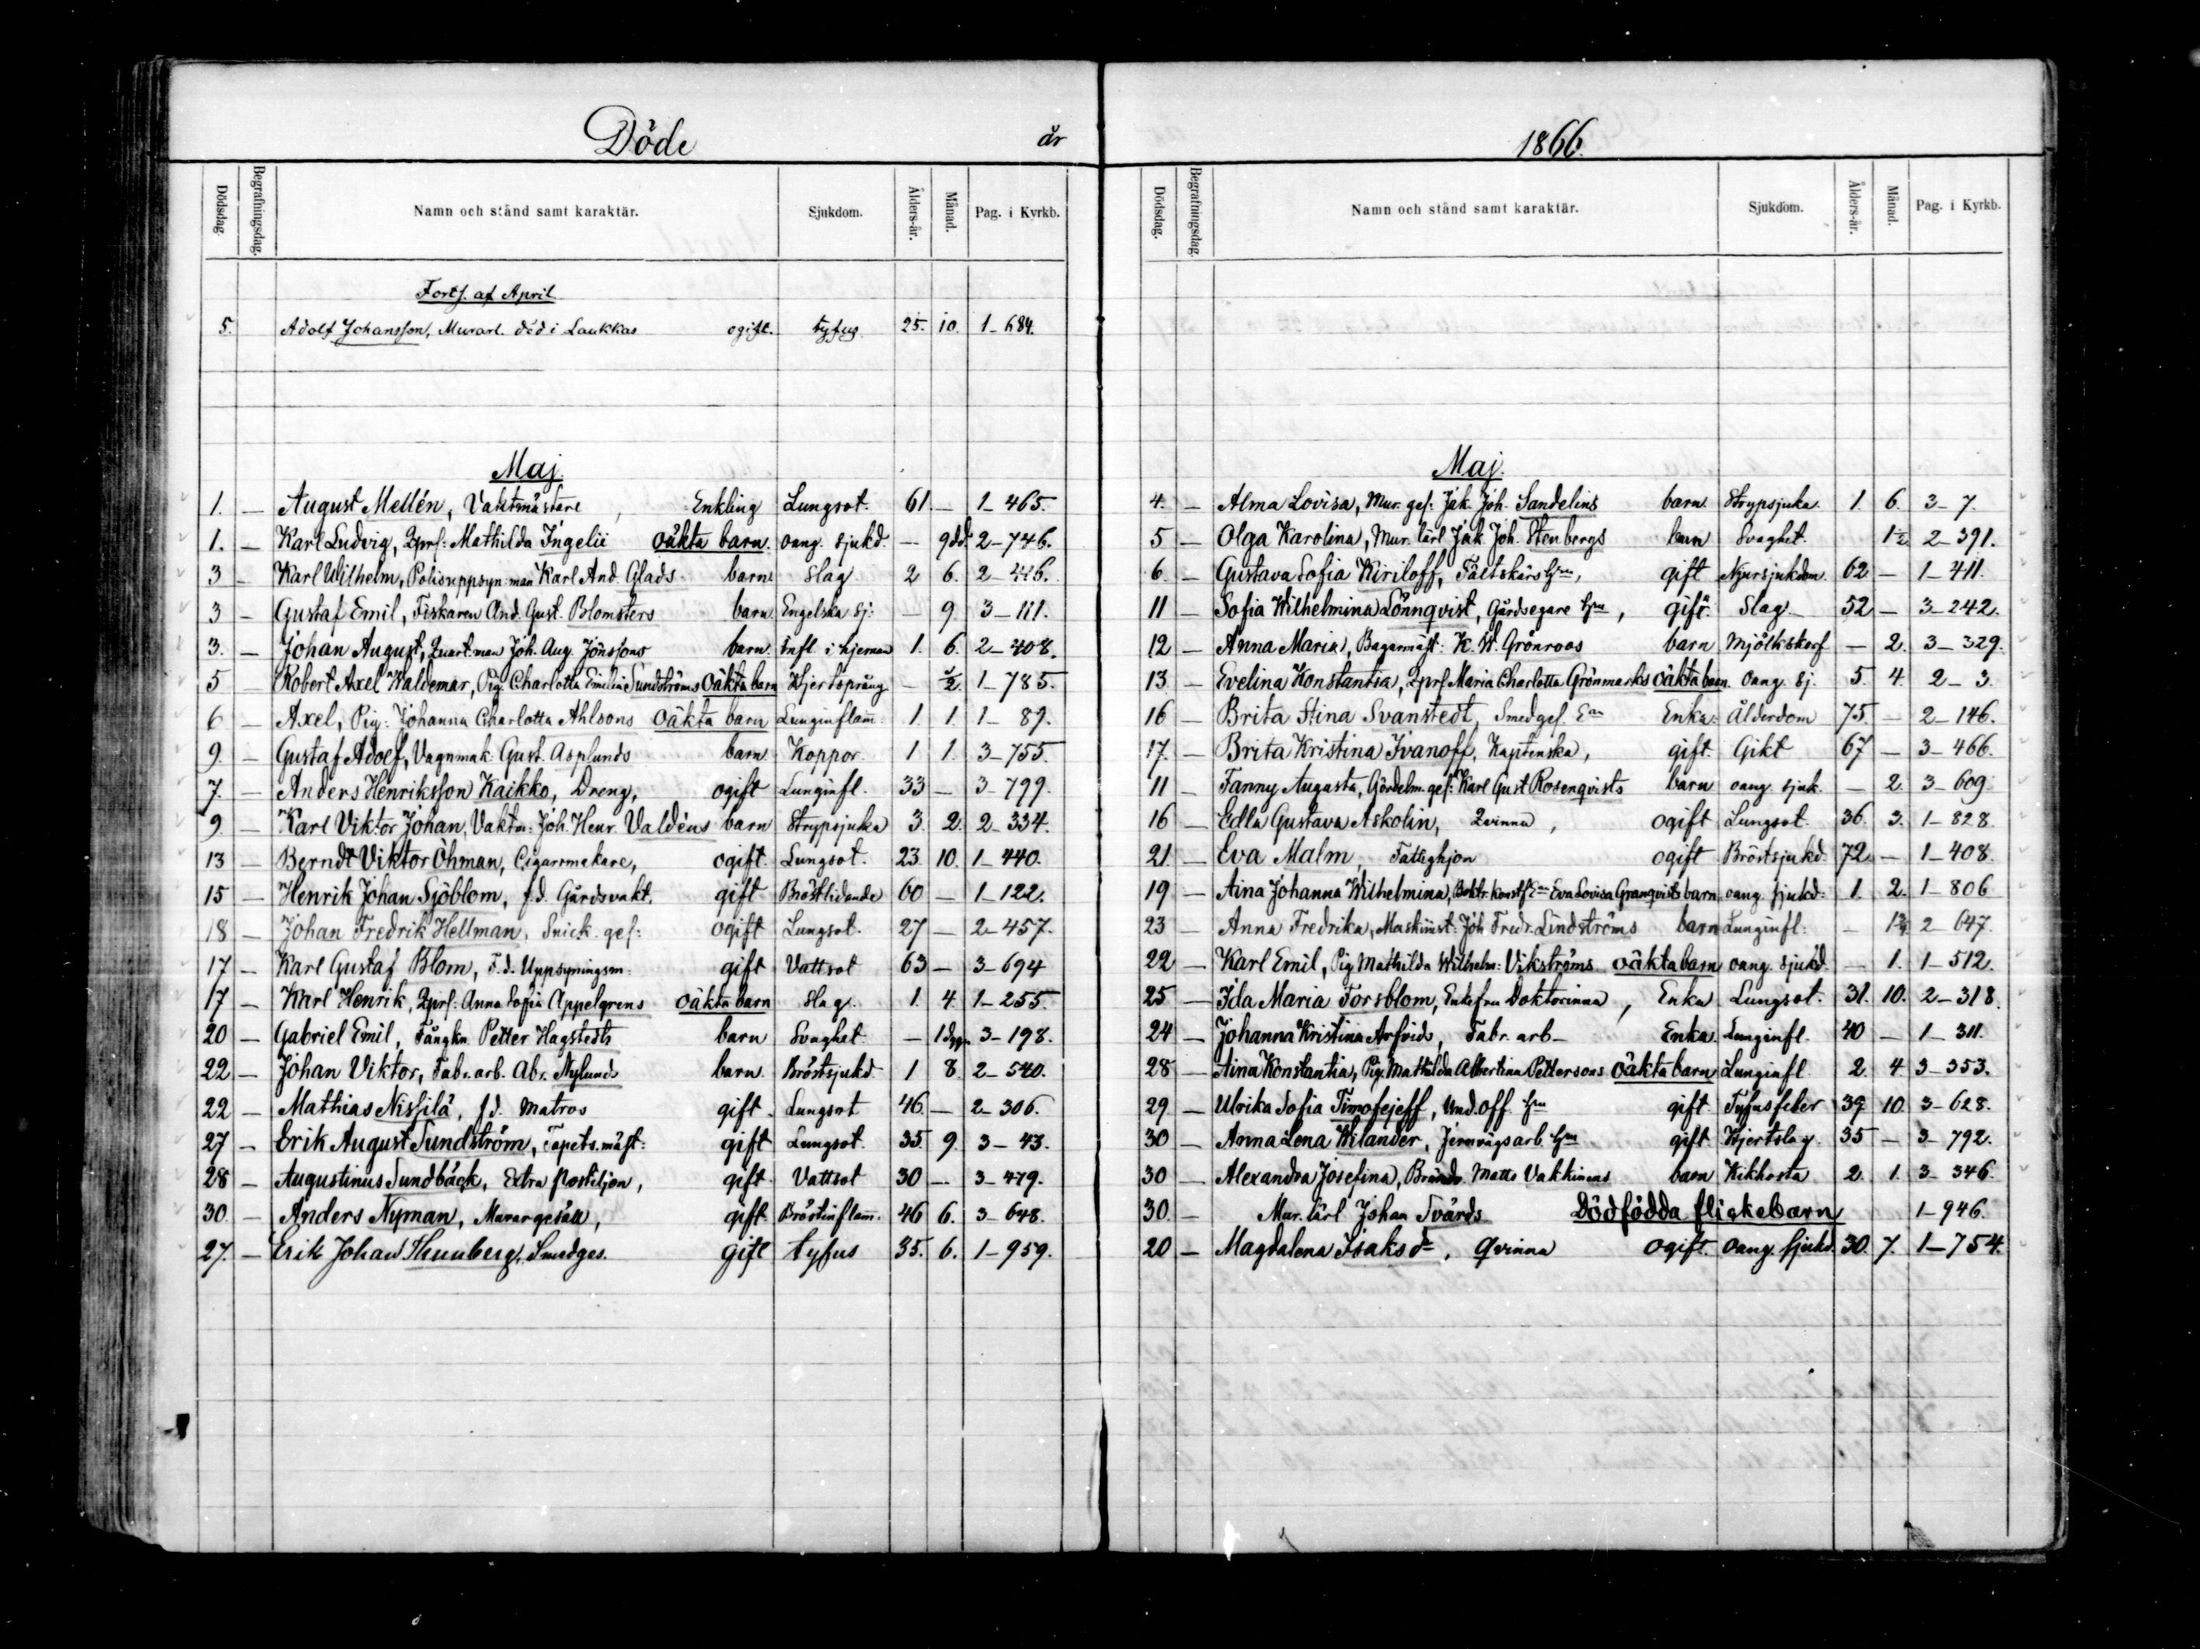 Döde år
Dödsdag. Begrafningsdag. Namn och stånd samt karaktär. Sjukdom. Ålders-år. Månad. Pag. i Kyrkb.
Forts. af April
5. Adolf Johansson, Murarl. död i Laukkas ogift. tyfus 25. 10. 1-684.
Maj.
1. — August Mellén, Vaktmästare, Enkling Lungsot. 61. — 1-465.
1. — Karl Ludvig, Qprs: Mathilda Ingelii oäkta barn. oang. sjukd. — 9dd. 2-746.
3 — Karl Wilhelm, Polisuppsyn: man Karl And. Glads barn Slag 2 6. 2-446.
3 — Gustaf Emil, Fiskaren And. Gust. Blomsters barn Engelska sj: — 9. 3-111.
3. — Johan August, Quart.man Joh. Aug. Jönssons barn. Infl. i hjernan 1. 6. 2-408.
5 — Robert Axel Waldemar, Pig. Charlotta Emelia Sundströms Oäkta barn Hjertsprång — ½ 1-785.
6 — Axel, Pig: Johanna Charlotta Ahlsons Oäkta barn Lunginflam: 1. 1. 1-89.
9. — Gustaf Adolf, Vagnmak. Gust. Asplunds barn. Koppor. 1 1. 3-755.
7. — Anders Henriksson Kaikko, Dreng, ogift Lunginfl. 33 — 3-799.
9 — Karl Viktor Johan, Vaktm: Joh. Henr. Valdéns barn Strypsjuka 3. 2. 2-334.
13 — Berndt Viktor Öhman, Cigarrmakare, ogift. Lungsot. 23 10. 1-440.
15 — Henrik Johan Sjöblom, f.d. Gårdsvakt. gift Bröstlidande 60 — 1-122.
18 — Johan Fredrik Hellman, Snick. ges: ogift Lungsot. 27 — 2-457.
17 — Karl Gustaf Blom, F.d. Uppsyningsm. gift Vattsot 63 — 3-694
17 — Karl Henrik, Qprs: Anna Sofia Appelgrens oäkta barn Slag. 1. 4. 1-255.
20 — Gabriel Emil, Fångkn. Petter Hagstedts barn Svaghet — 1 dygn 3-198.
22 — Johan Viktor, Fabr. arb. Abr. Nylunds barn. Bröstsjukd 1 8. 2-540.
22 — Mathias Nissilä, f.d. Matros gift. Lungsot 46. — 2-306.
27 — Erik August Sundström, Tapets. mäst: gift Lungsot. 35 9. 3-43.
28 — Augustinus Sundbäck, Extra Postiljon, gift. Vattsot 30 — 3-479.
30. — Anders Nyman, Murargesäll, gift. Bröstinflam. 46 6. 3-648.
27. — Erik Johan Thunberg, Smedges. gift tyfus 35. 6. 1-959.
1866.
Dödsdag. Begrafningsdag. Namn och stånd samt karaktär. Sjukdom. Ålders-år. Månad. Pag. i Kyrkb.
Maj.
4. — Alma Lovisa, Mur. ges: Jak. Joh. Sandelins barn. Strypsjuka. 1. 6. 3-7.
5 — Olga Karolina, Mur. lärl Jak. Joh. Stenbergs barn Svaghet. 1½ 2-391.
6. — Gustava Sofia Kiriloff, Fältskärs Hru, gift Njursjukdom. 62 — 1-411.
11 — Sofia Wilhelmina Lönnqvist, Gårdsegare Hru, gift. Slag 52 — 3-242.
12 — Anna Maria, Bagarmäst: K. W. Grönroos barn Mjölkskorf — 2. 3-329.
13. — Evelina Konstantia, Qprs Maria Charlotta Grönmarks oäkta barn. Oang. sj. 5. 4. 2-3.
16 — Brita Stina Svanstedt, Smedges. Ean Enka: Ålderdom 75. — 2-146.
17. — Brita Kristina Ivanoff, Kaptenska, gift. Gikt 67 — 3-466.
11 — Fanny Augusta, Gördelm. ges: Karl Gust Rosenqvists barn oang. sjuk. — 2. 3-609.
16 — Edla Gustava Askolin, Qvinna, ogift Lungsot. 36. 3. 1-828.
21. — Eva Malm, Fattighjon ogift Bröstsjukd 72 — 1-408.
19 — Aina Johanna Wilhelmina, Eva Lovisa Granqvists barn oang. sjukd: 1. 2. 1-806
23 — Anna Fredrika, Maskinist: Joh Fredr. Lindströms barn Lunginfl: — 2-647.
22 — Karl Emil, Pig Mathilda Wilhelm: Vikströms oäkta barn oang. sjukd. — 1. 1-512.
25 — Ida Maria Forsblom, Enkefru Doktorinna, Enka Lungsot. 31. 10. 2-318.
24 — Johanna Kristina Arfvids, Fabr. arb — Enka. Lunginfl. 40 — 1-311.
28 — Aina Konstantia, Pig. Mathilda Albertina Pettersons oäkta barn Lunginfl. 2. 4 3-353.
29. — Ulrika Sofia Timofejeff, Und.off. Hru gift Tyfusfeber 39 10. 3-628.
30 — Anna Lena Wilander, Jernvägsarb. Hru gift Hjertslag. 35 — 3-792.
30 — Alexandra Josefina, Matts Vakkinens barn Kikhosta 2. 1. 3-346.
30. — Mur. lärl Johan Svärds Dödfödda flickebarn 1-946.
20 — Magdalena Isaksdr, Qvinna ogift. oang. sjukd. 30. 7. 1-754.